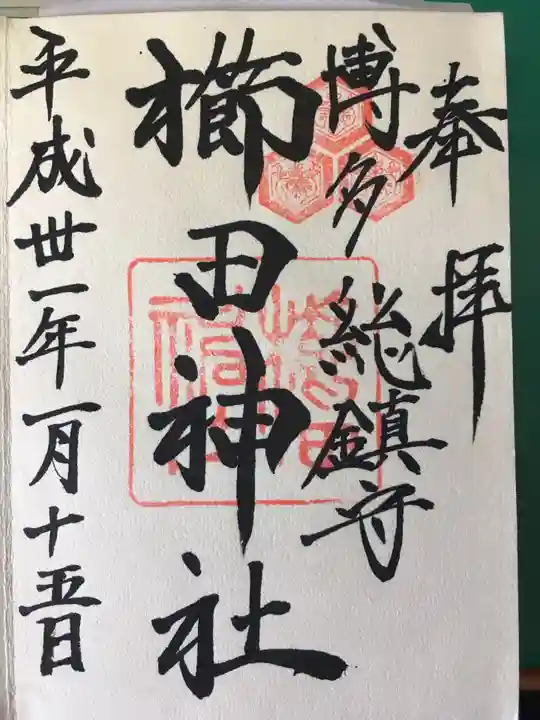 奉拝
博多総鎮守
櫛田神社
平成丗一年一月十五日